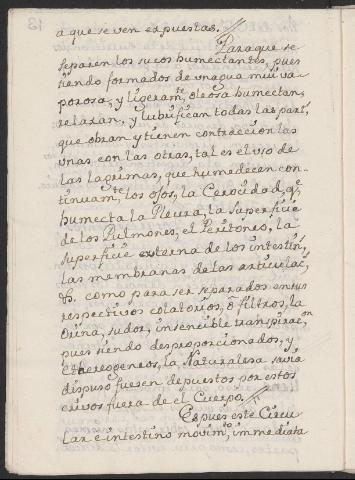 a que se ven expuestas.
Para que se
separen los sucos humectantes, pues
siendo formados de un agua mui va-
porosa, y ligeramte. oleosa humectan,
relaxan, y lubrifican todas las part.s
que obran y tienen contraccion las
unas con las otras, tal es el uso de
las lagrimas, que humedecen con-
tinuam.te los ojos, la Cerocidad, q.e
humecta la Pleura, la superficie
de los Pulmones, el Peritoneo, la
superficie externa de los intestin.s
las membranas de las articulac.s
&. como para ser separados en sus
respectivos colatorios, ô filtros, la
Orina, sudor, insencible transpirac.on
pues siendo desproporcionados, y
etherogeneos, la Naturalesa savia
dispuso fuesen depuestos por estos
crivos fuera de el Cuerpo.
Es pues este Circu
lar e intestino movim.to immediata